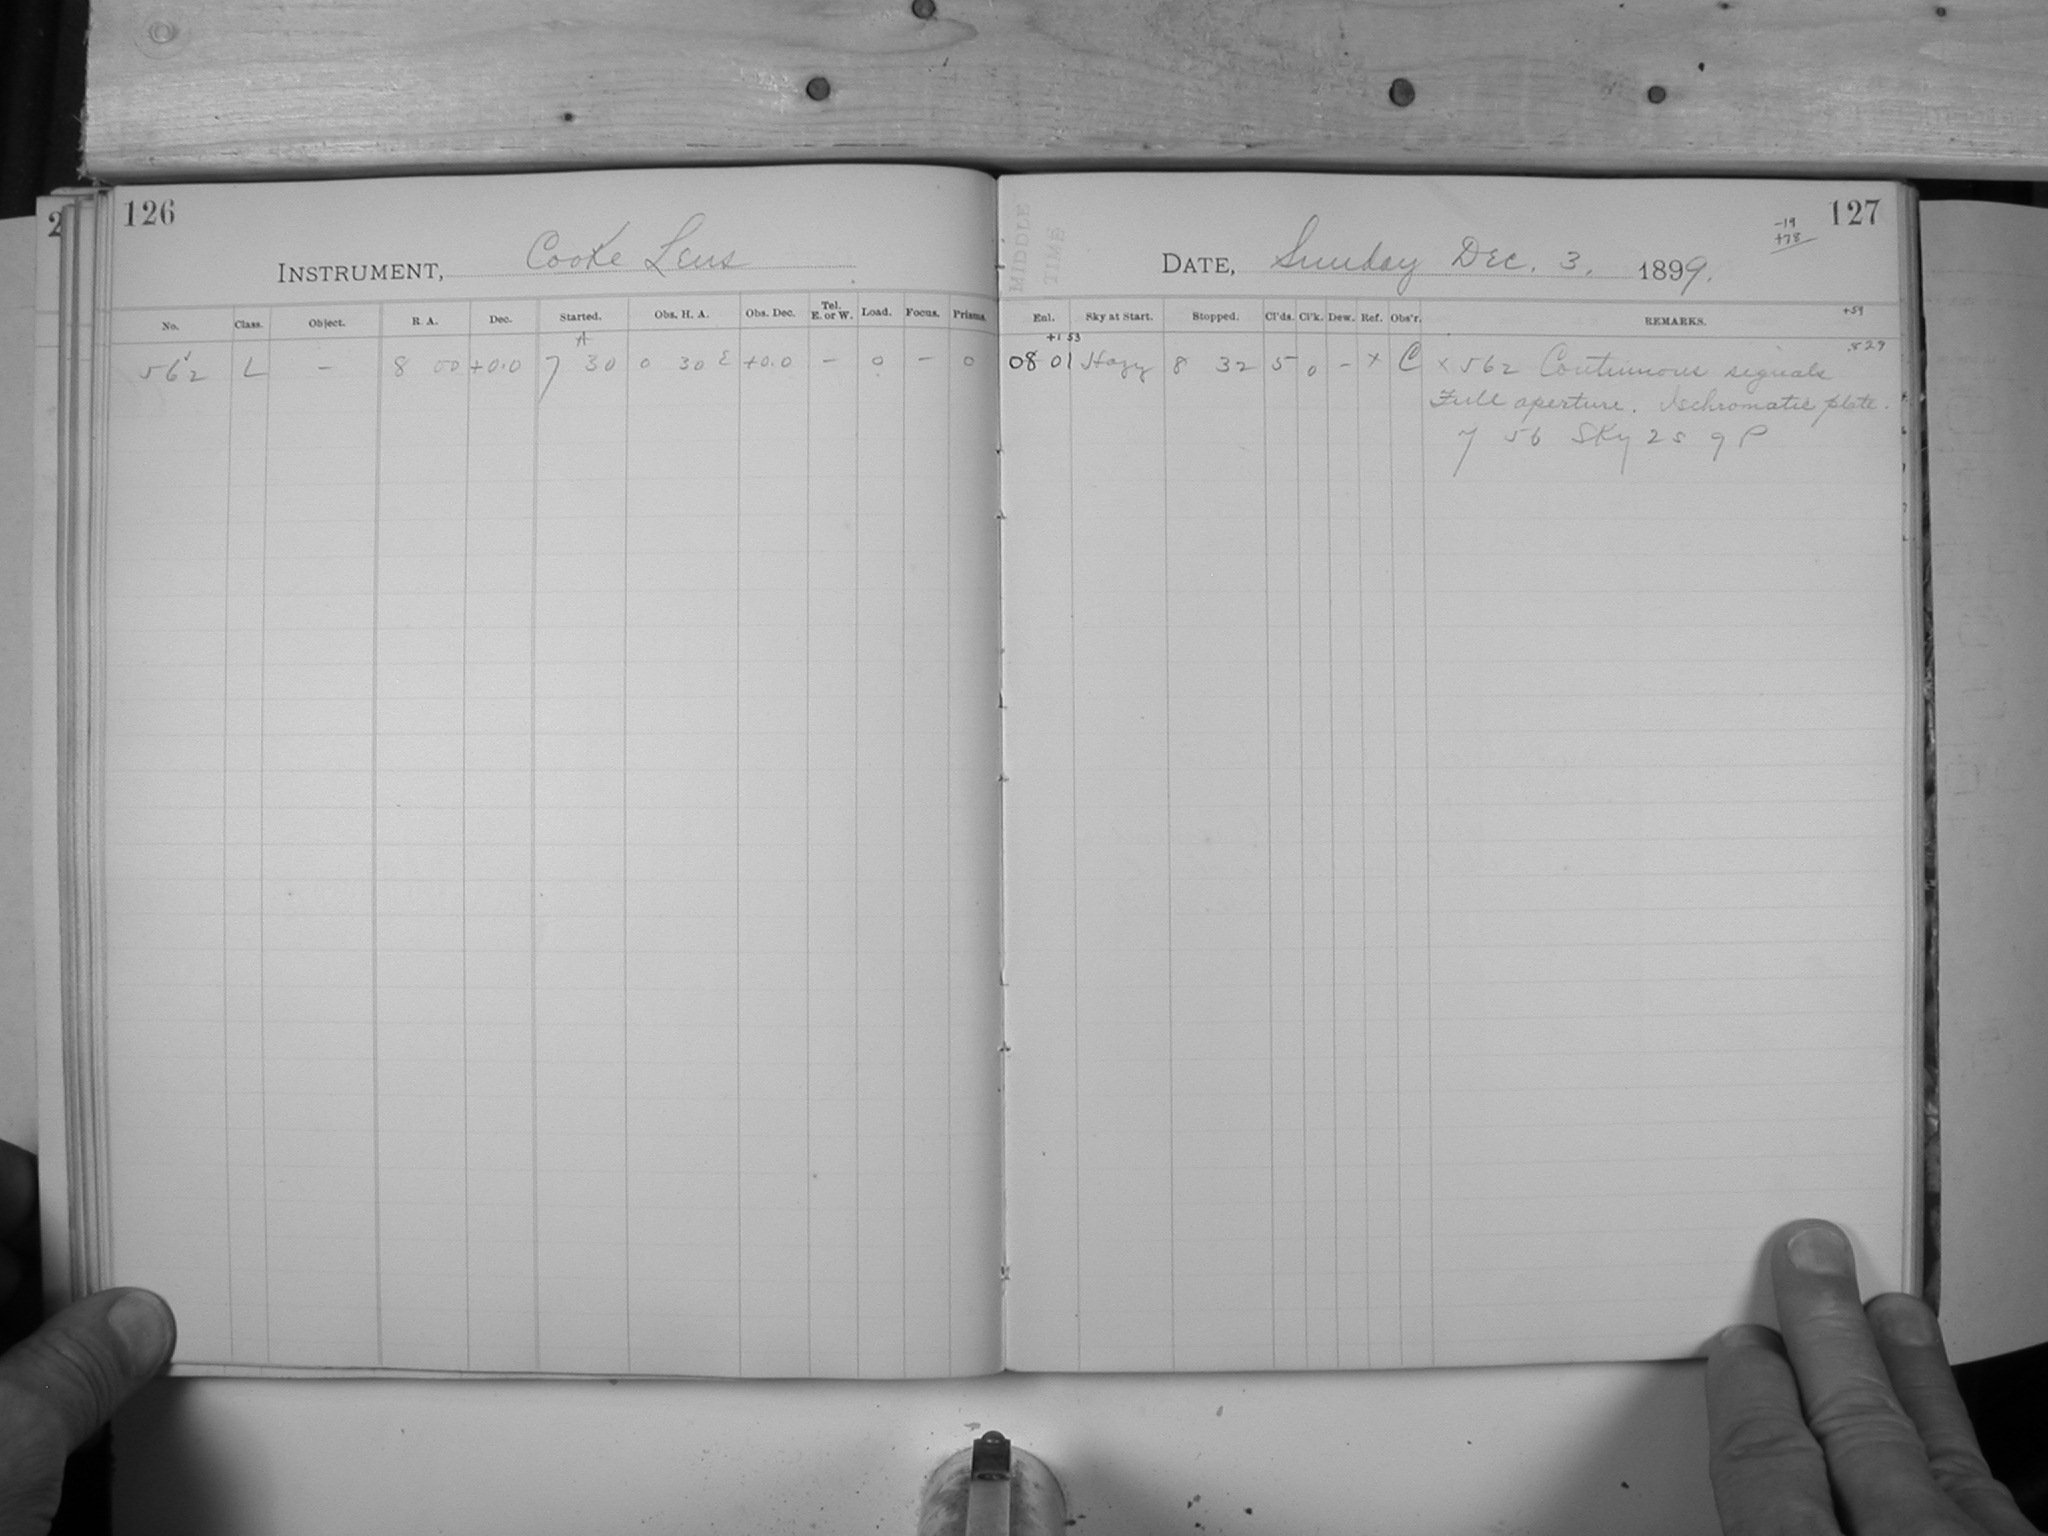 2
126
INSTRUMENT, Cooke Lens
No. Class. Object. R. A. Dec. Started. Obs. H. A. Obs. Dec. Tel. E. or W. Load. Focus. Prisms.
A
562 L – 8 00 +0.0 7 30 0 30 E +0.0 – 0 – 0
MIDDLE
TIME
-19
+78
127
DATE, Sunday Dec. 3, 1899.
+59
Enl. Sky at Start. Stopped. Cl'ds. Cl'k. Dew. Ref. Obs'r. REMARKS.
+1 53
.829
08 01 Hazy 8 32 5 0 – x C x 562 Continuous signals
Full aperture. Ischromatic plate.
7 56 Sky 2s 9 P